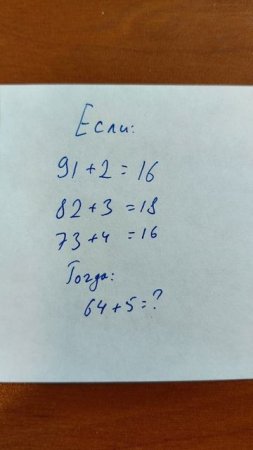 Если:
91+2=16
82+3=18
73+4=16
Тогда:
64+5=?